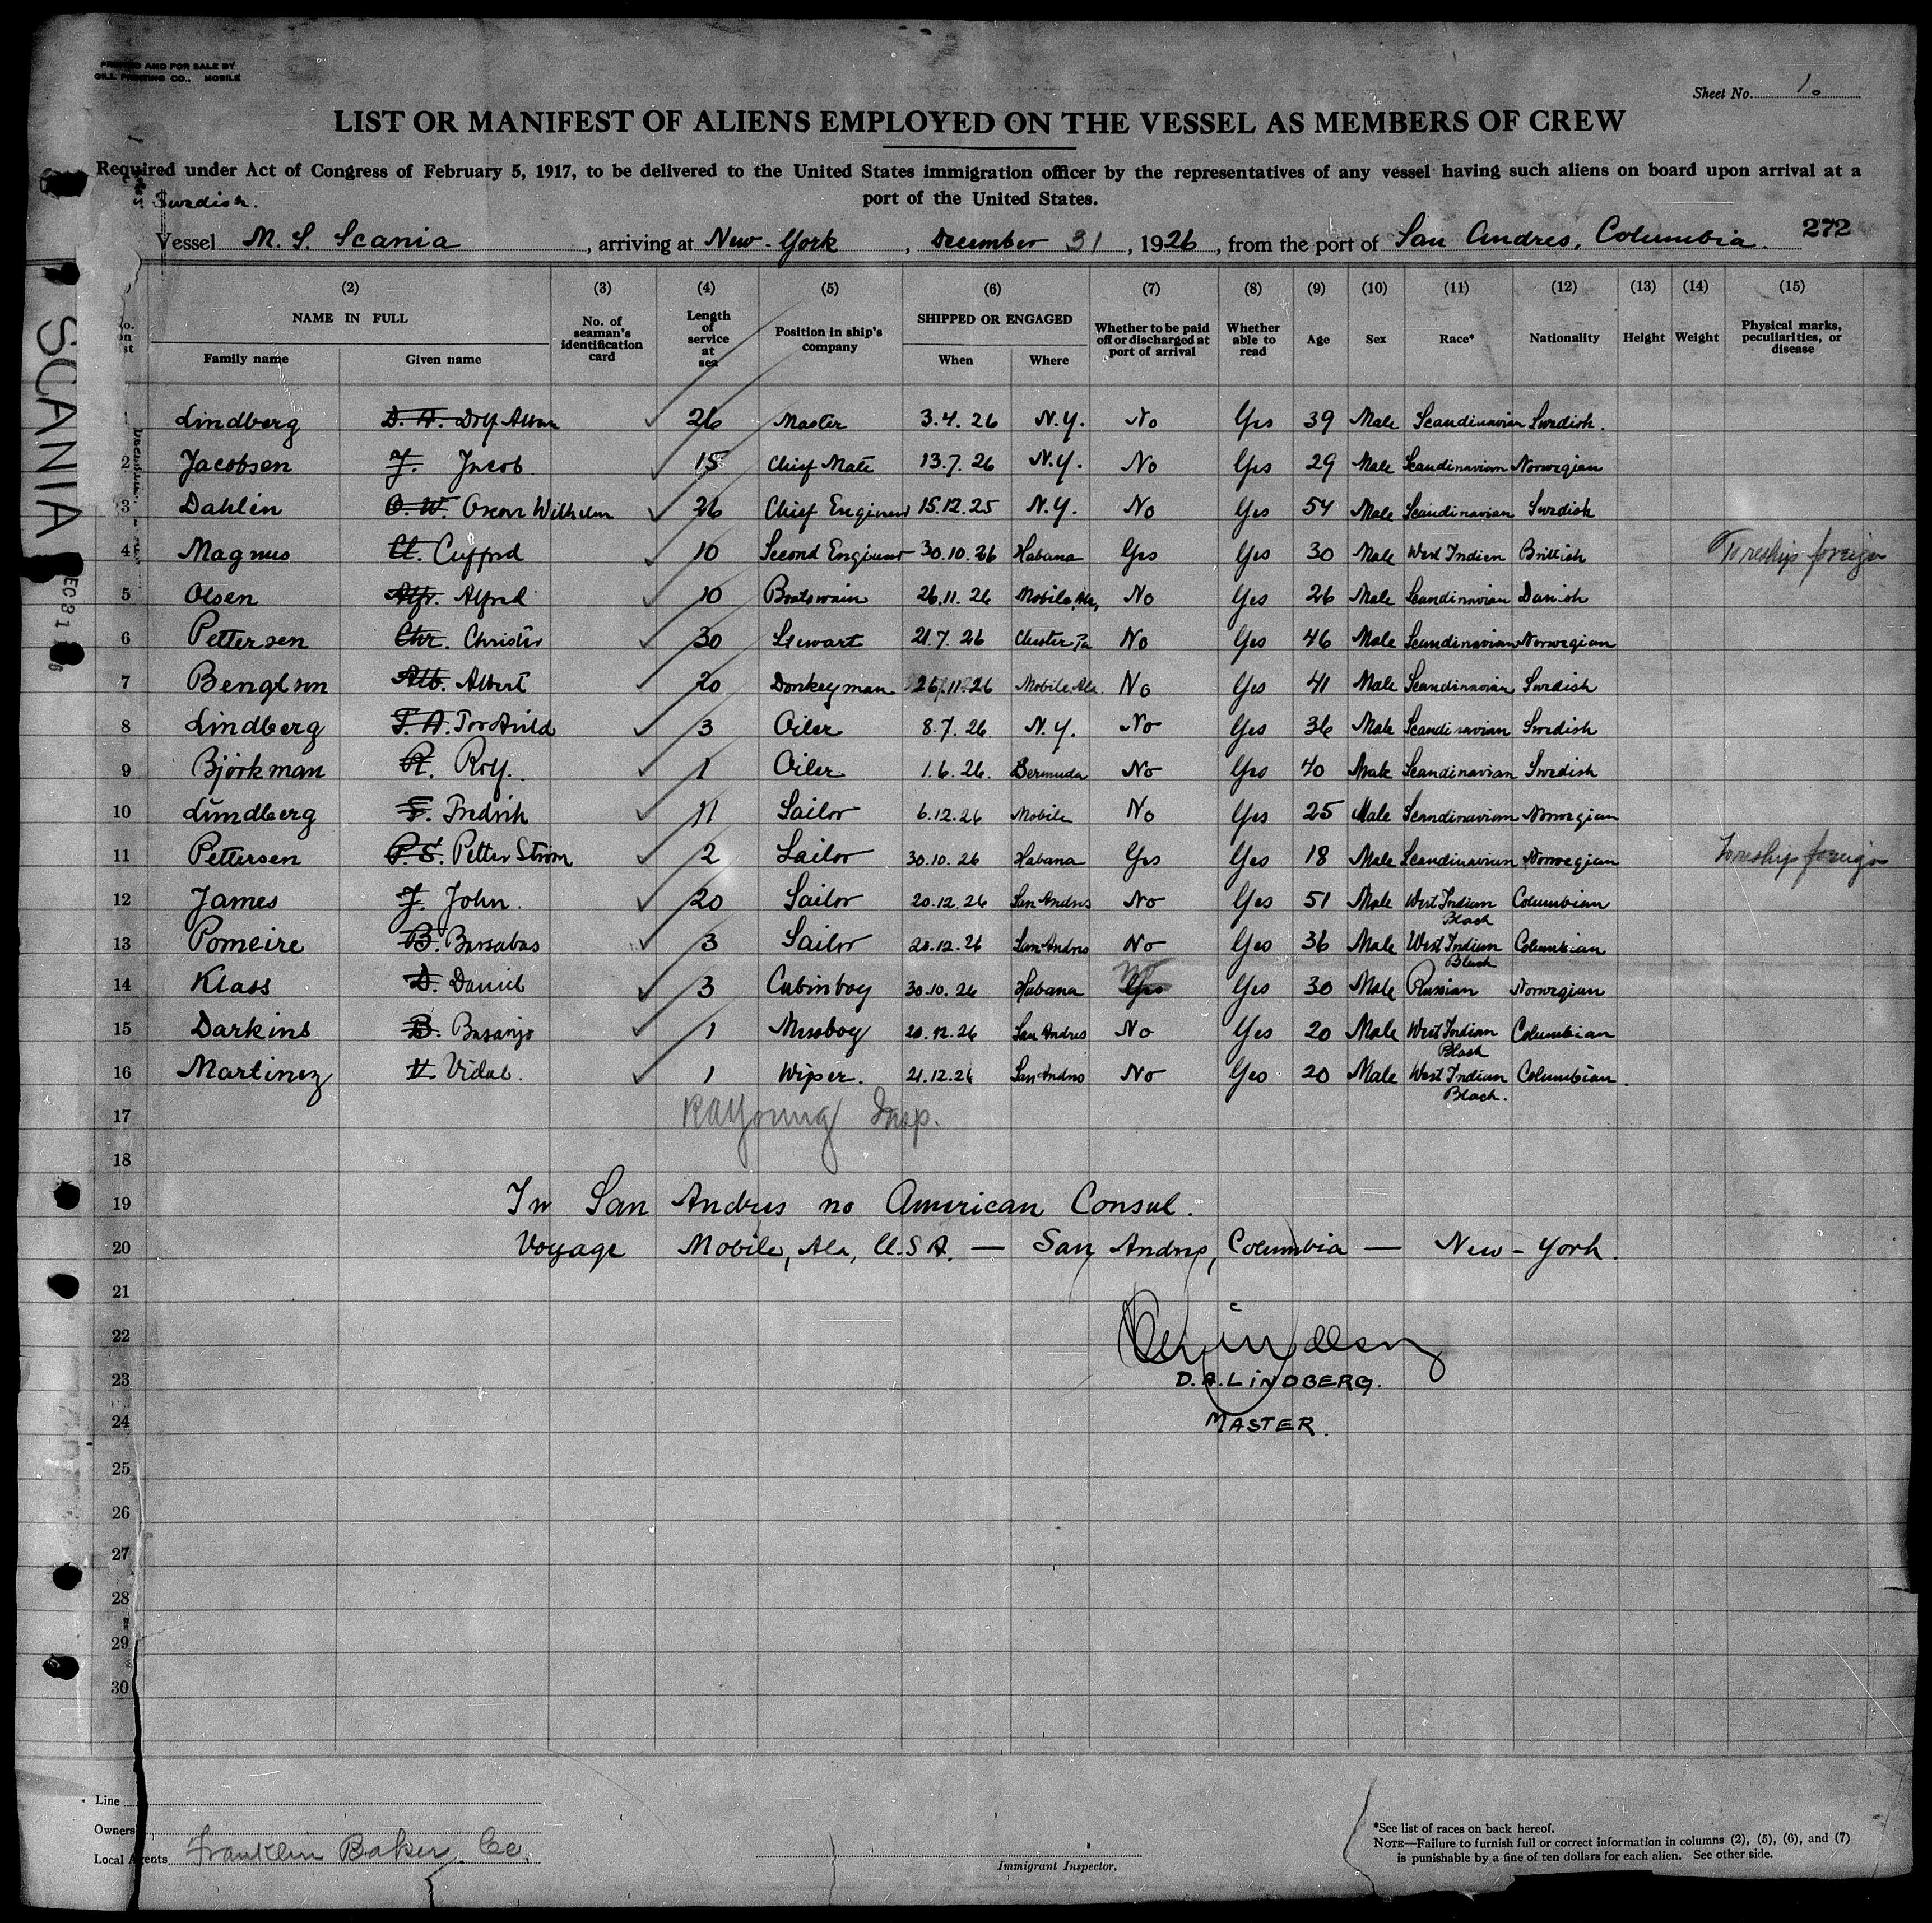 PRINTED AND FOR SALE BY
GILL PRINTING CO., MOBILE
Sheet No. 1.
LIST OR MANIFEST OF ALIENS EMPLOYED ON THE VESSEL AS MEMBERS OF CREW
Required under Act of Congress of February 5, 1917, to be delivered to the United States immigration officer by the representatives of any vessel having such aliens on board upon arrival at a
port of the United States.
Swedish.
Vessel M. S. Scania, arriving at New-York, December 31, 1926, from the port of San Andres, Columbia. 272
SCANIA
(2) (3) (4) (5) (6) (7) (8) (9) (10) (11) (12) (13) (14) (15)
NAME IN FULL
Family name Given name
No. of seaman's identification card
Length of service at sea
Position in ship's company
SHIPPED OR ENGAGED
When Where
Whether to be paid off or discharged at port of arrival
Whether able to read
Age Sex Race* Nationality Height Weight
Physical marks, peculiarities, or disease
Lindberg D. A. 26 Master 3.4.26 N.Y. No Yes 39 Male Scandinavian Swedish.
2 Jacobsen J. Jacob. 15 Chief Mate 13.7.26 N.Y. No Yes 29 Male Scandinavian Norwegian
3 Dahlin O. W. Oscar Wilhelm 26 Chief Engineer 15.12.25 N.Y. No Yes 54 Male Scandinavian Swedish
4 Magnus Cl. 10 Second Engineer 30.10.26 Habana Yes Yes 30 Male West Indien Brittish To reship foreign
5 Olsen Alfr. Alfred 10 Boatswain 26.11.26 Mobile, Ala, No Yes 26 Male Scandinavian Danish
6 Pettersen Chr. 30 Stewart 21.7.26 Chester Pa No Yes 46 Male Scandinavian Norwegian
7 Bengtson Alb. Albert 20 Donkeyman 26.11.26 Mobile, Ala. No Yes 41 Male Scandinavian Swedish
8 Lindberg T. A. 3 Oiler 8.7.26 N.Y. No Yes 36 Male Scandinavian Swedish
9 Björkman R. 1 Oiler 1.6.26. Bermuda No Yes 40 Male Scandinavian Swedish
10 Lundberg F. Fredrik 11 Sailor 6.12.26 Mobile No Yes 25 Male Scandinavian Norwegian
11 Pettersen P. S. Petter Strom 2 Sailor 30.10.26 Habana Yes Yes 18 Male Scandinavian Norwegian To reship foreign
12 James J. John. 20 Sailor 20.12.26 San Andres No Yes 51 Male West Indian Black Columbian
13 Pomeire B. Barsabas 3 Sailor 20.12.26 San Andres No Yes 36 Male West Indian Black Columbian
14 Klass D. Daniel 3 Cabinboy 30.10.26 Habana Yes No Yes 30 Male Russian Norwegian
15 Darkins B. 1 Messboy 20.12.26 San Andres No Yes 20 Male West Indian Black Columbian
16 Martinez V. Vidal. 1 Wiper. 21.12.26 San Andres No Yes 20 Male West Indian Black. Columbian.
17 RA Young Insp.
18
19 In San Andres no American Consul.
20 Voyage Mobile, Ala, U.S.A. — San Andres, Columbia — New-York.
21
22
23 D. A. LINDBERG.
24 MASTER.
25
26
27
28
29
30
Line
Owners
Local Agents Franklin Baker Co.
Immigrant Inspector.
*See list of races on back hereof.
NOTE—Failure to furnish full or correct information in columns (2), (5), (6), and (7)
is punishable by a fine of ten dollars for each alien. See other side.